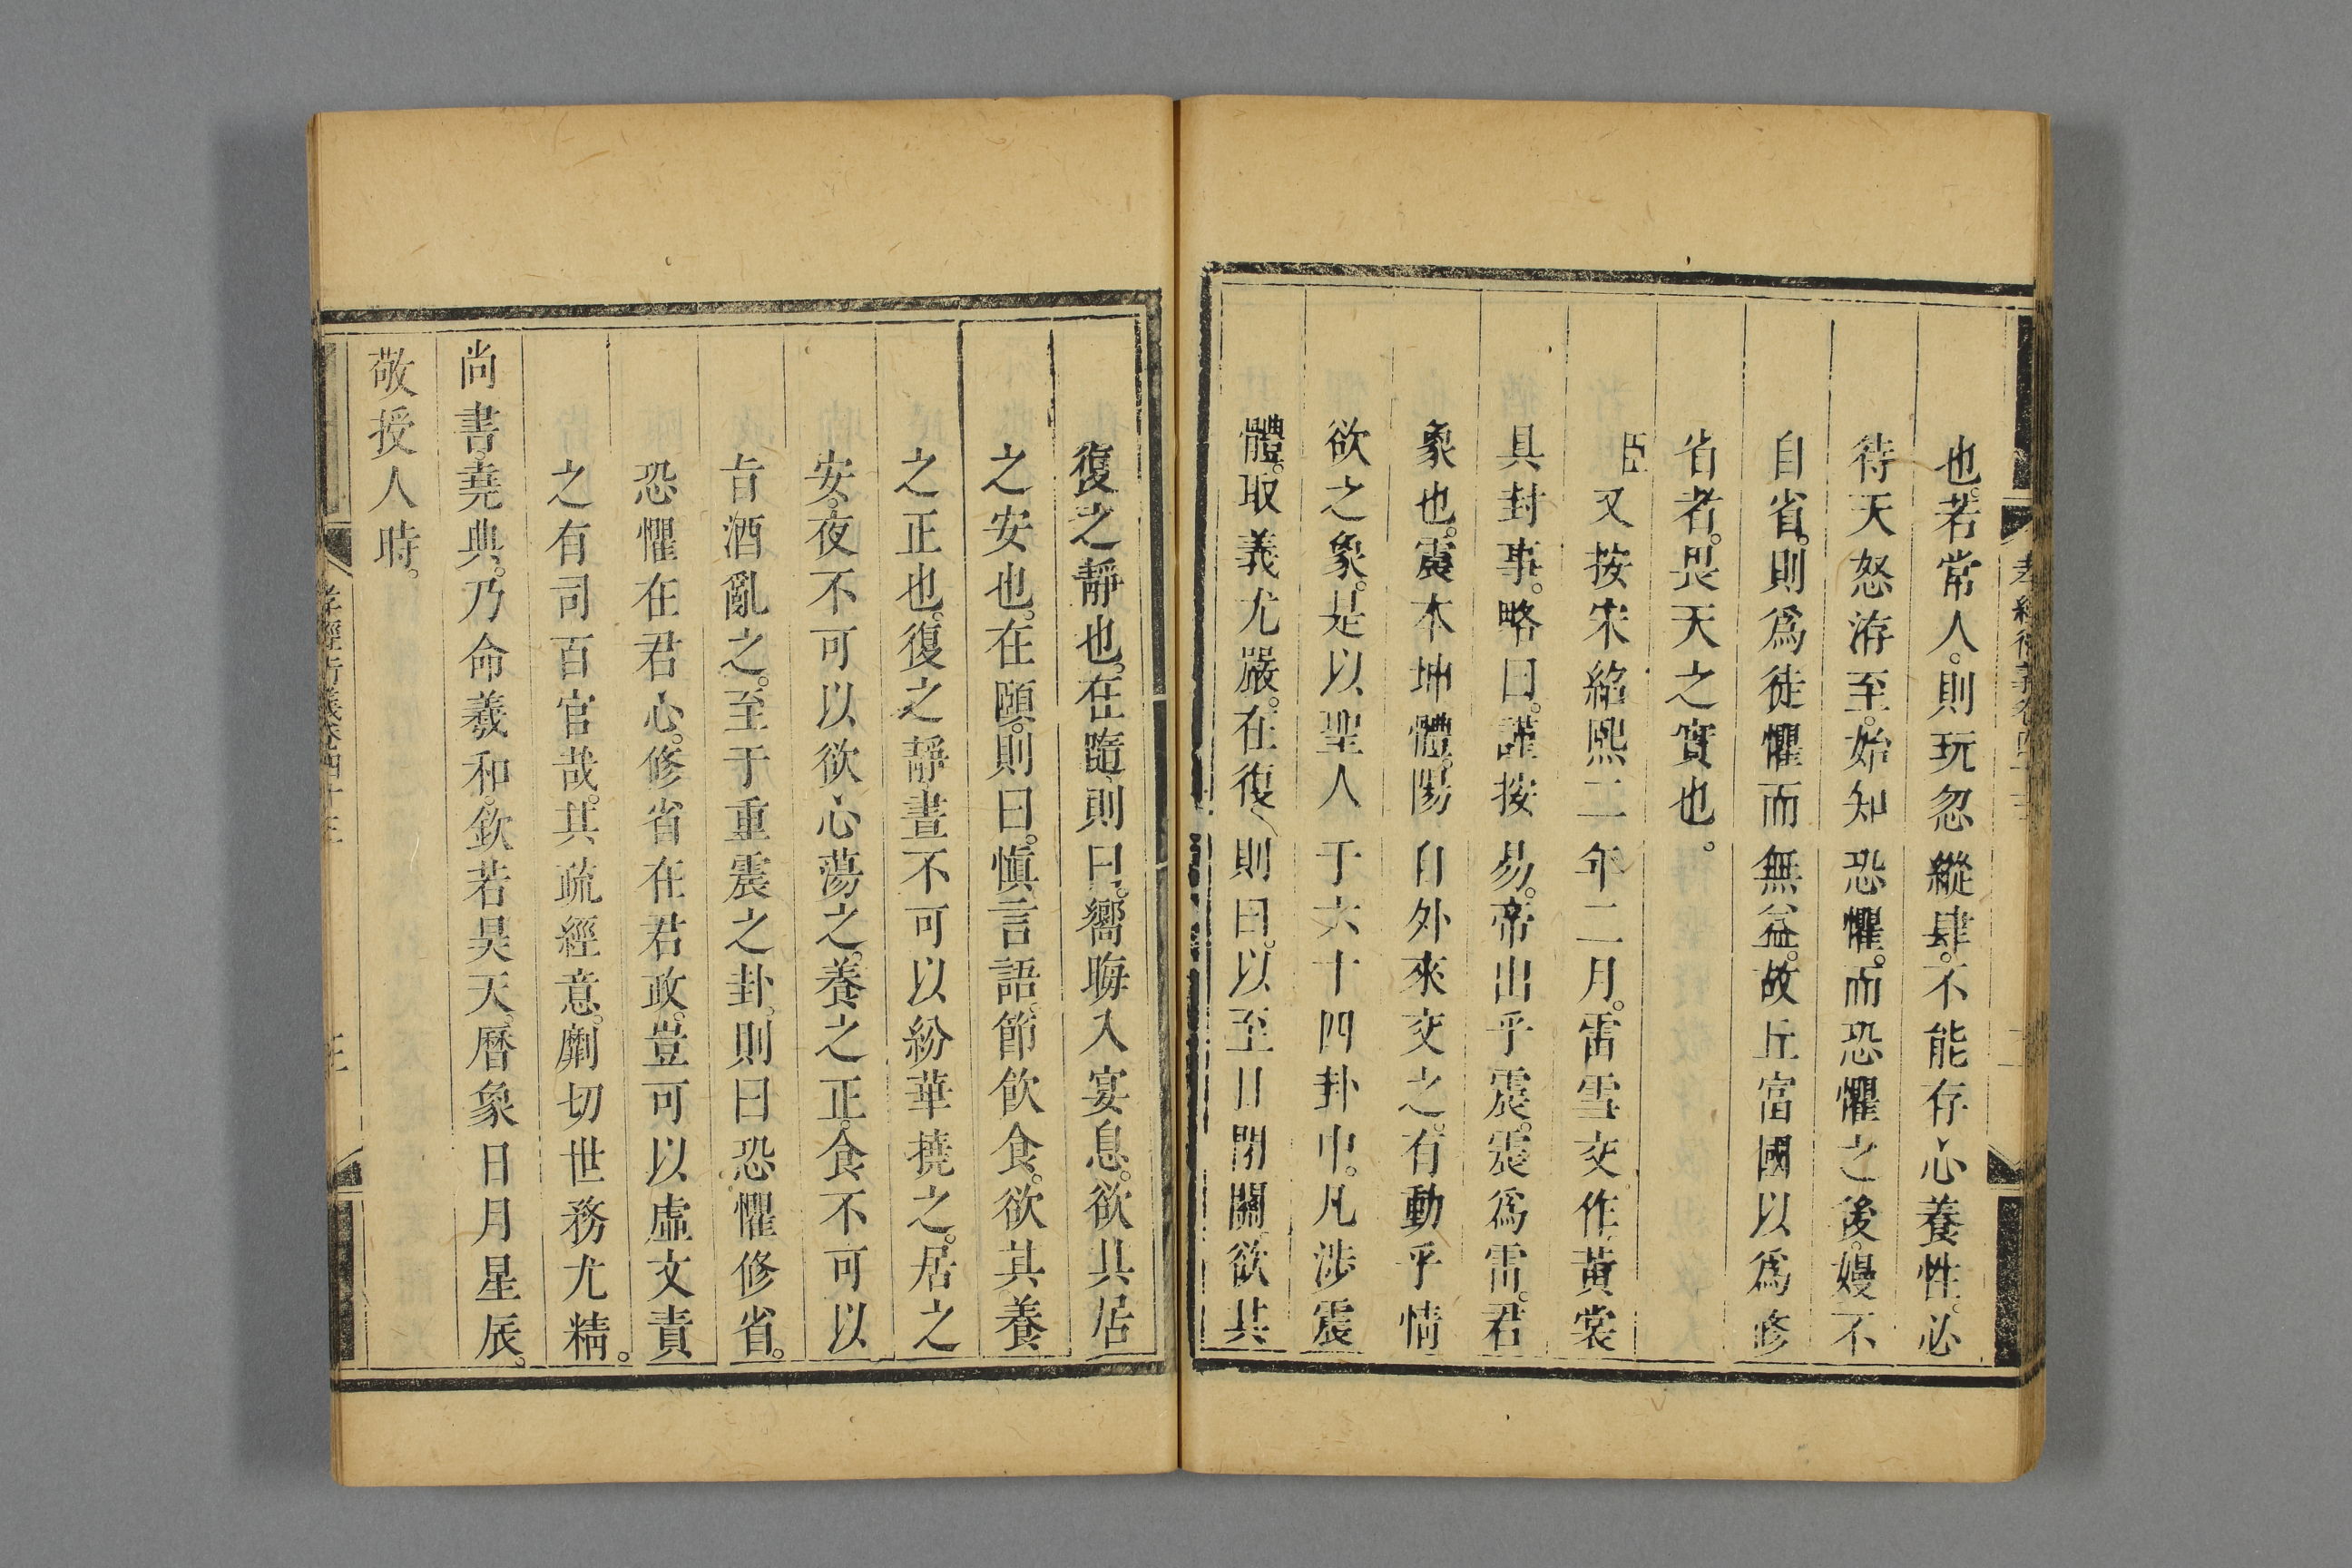 也。若常人。則玩忽縱肆。不能存心養性。必
待天怒洊至。始知恐懼。而恐懼之後。嫚不
自省。則爲徒懼而無益。故丘富國以爲修
省者。畏天之實也。
臣又按宋紹熙二年二月。雷雪交作。黃裳
具封事。略曰。謹按易。帝出乎震。震爲雷。君
象也。震本坤體。陽自外來交之。有動乎情
欲之象。是以聖人于六十四卦中。凡涉震
體。取義尤嚴。在復、則曰。以至日閉關。欲其
復之靜也。在隨、則曰。嚮晦入宴息。欲其居
之安也。在頤。則曰。愼言語、節飲食。欲其養
之正也。復之靜、晝不可以紛華撓之。居之
安。夜不可以欲心蕩之。養之正。食不可以
旨酒亂之。至于重震之卦。則曰恐懼修省。
恐懼在君心。修省在君政。豈可以虛文責
之有司百官哉。其疏經意。劘切世務尤精。
尚書。堯典。乃命羲和。欽若昊天。曆象日月星辰。
敬授人時。
孝經衍義卷四十三